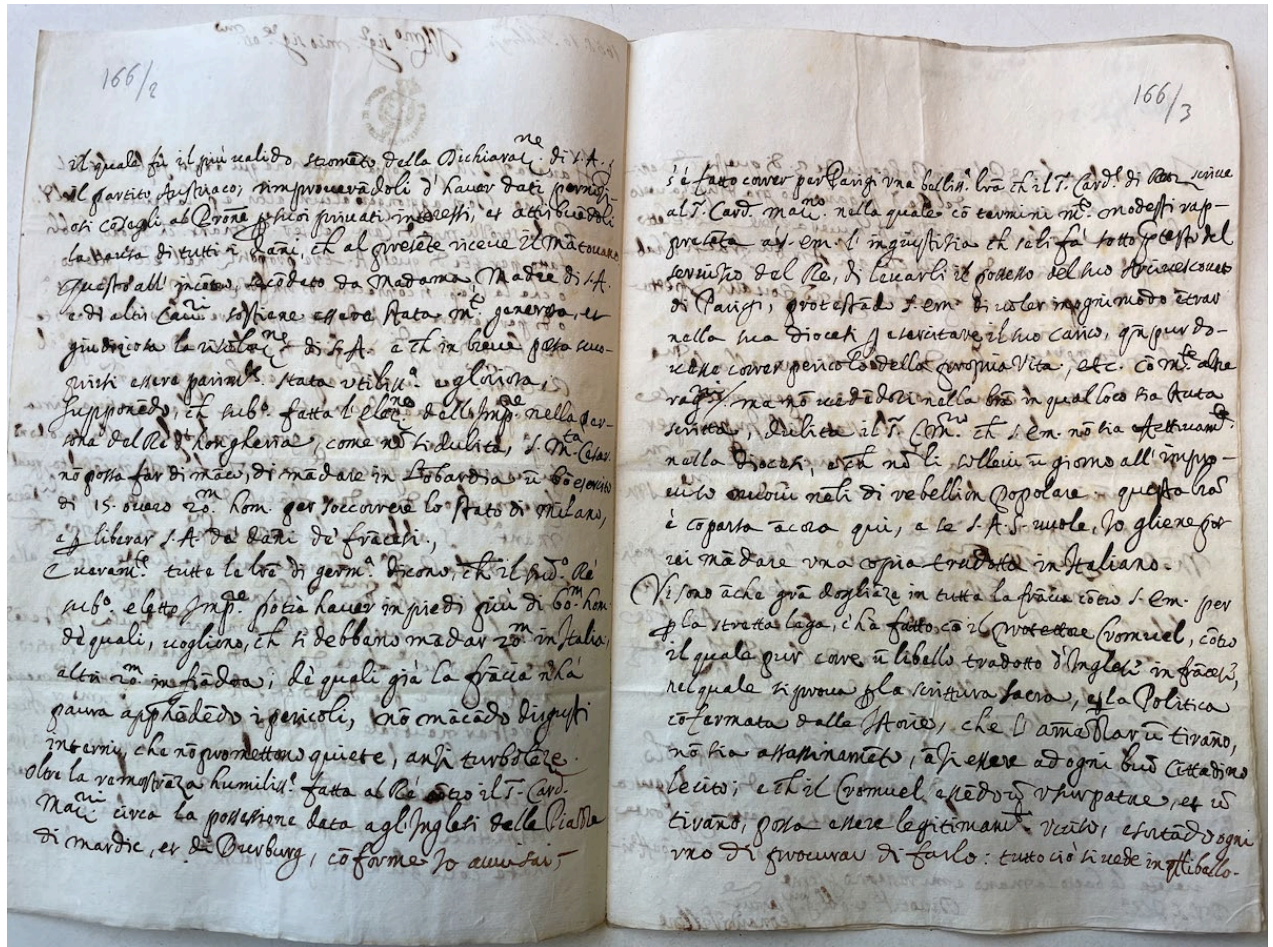 166/2
il quale fù il più valido stromẽto della Dichiarat.ne di S.A.
il partito Austriaco, rimproverãdoli d'haver dati perniti-
osi cõsegli al Prõne suoi privati interessi, et attribuẽdoli
la causa di tutti i dãni, ch al presẽte riceve il Mãtouano
questo all' incõtro, secõdato da Madama, Madre di S.A.
e di altri Cau.ri sostiene essere stata m.to generosa, et
giuditiosa la risolut.ne di S.A. e ch in breve possa sco-
prirsi essere parim.te stata utiliss.a e gloriosa,
supponẽdo, ch sub.o fatta l'elet.ne dell' Imp.re nella per-
sona del Rè d'Hongheria, come nõ si dubita, S. M.tà Cesar.
nõ possa far di mãco, di mãdare in Lõbardia ũ bõ esercito
di 15. overo 20.m hom. per soccorrere lo stato di Milano,
e liberar S.A. da dãni de' frãcesi.
Veram.te tutte le lr̃e di germ.a dicono, ch il sud.o Rè
sub.o eletto Imp.re potrà haver in piedi più di 60.m hom.
de quali, vogliono, ch si debbano mãdar 20.m in Italia,
altri 20.m in fiãdra; de quali già la frãcia n'hà
paura apphẽdẽdo i pericoli, nõ mãcãdo disgusti
interni, che nõ promettono quiete, anzi turbolẽze.
Oltre la remostrãza humiliss.a fatta al Rè cõtro il S. Card.
Maz.ni circa la possessione data agl' Inglesi delle Piazze
di mardic, et di Burburg, cõforme Io avvisai,
166/3
s'è fatto correr per Parigi una belliss.a lr̃a ch il S. Card. di Retz scrive
al S. Card. Maz.no nella quale cõ termini m.to modesti rap-
presẽta à S. em. l'ingiustitia ch se li fà sotto ptesto del
servitio del Re, di levarli il possesso del suo Arcivescovato
di Parigi, protestãdo S. em. di voler in ogni modo ẽtrar
nella sua diocesi esercitare il suo carico, qñ pur do-
vesse correr pericolo della propria Vita, etc. cõ m.te altre
rag.ni ma nõ vedẽdosi nella lr̃a in qual loco sia stata
scritta, dubita il S. C. M. ch S. em. nõ sia
nella diocesi, e ch nõ li sollevi ũ giorno all' impro-
viso di rebellion popolare questa lr̃a
è cõparsa ãcora quì, e se S. A. S. vuole, Io gliene for
rei mãdare una copia tradotta in Italiano.
Vi sono ãche grã dogliãze in tutta la frãcia cõtro S. em. per
la stretta lega, ch'à fatto cõ il protettore Cromuel, cõtro
il quale pur corre ũ libello tradotto d'Inglese in frãcese,
nel quale si prova la scrittura sacra, e la Politica
cõfermata dalle Istorie, che l'ãmazzar ũ tirãno,
nõ sia assassinamẽto, ãzi essere ad ogni buõ Cittadino
lecito; e ch il Cromuel essẽdo ũ usurpatore, et ũ
tirãno, possa essere legitimam.te ucciso, esortãdo ogni
uno di procurar di farlo: tutto ciò si vede in q̃l libello.